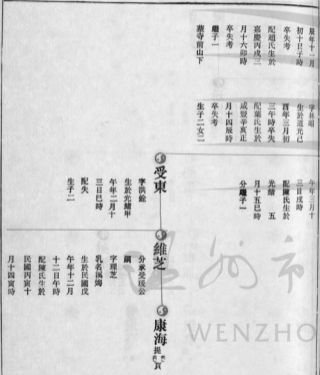 庚年十一月
初十日子時
卒失考
配趙氏生於
嘉慶丙戌三
月十六卯時
卒失考
繼子一
墓寺前山下
字林
生於道光己
酉年三月初
三時卒失
配葉氏生於
咸豐辛亥正
月十四辰時
卒失考
生子二女二
午年三月十
三日戌時
配陳氏生於
光緒 五
月十五巳時
分繼子一
受東
字洪銓
生於光緒甲
午年二月十
三日巳時
配失
生子二
維芝
分承受後公
嗣
字理芝
乳名蒲姆
生於民國戊
午年十二月
十二日午時
配陳氏生於
民國丙寅十
月十四寅時
康海
提 頁
温州市
WENZHO